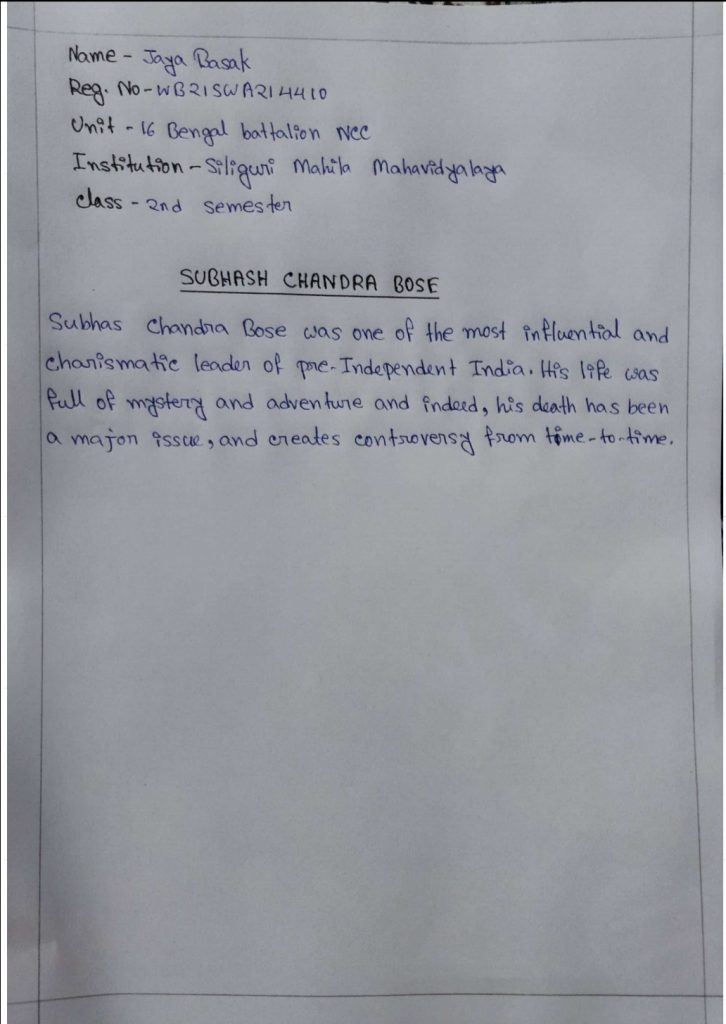 Name - Jaya Basak
Reg. No - WB21SWA214410
Unit - 16 Bengal battalion NCC
Institution - Siliguri Mahila Mahavidyalaya
Class - 2nd semester
SUBHASH CHANDRA BOSE
Subhas Chandra Bose was one of the most influential and
charismatic leader of pre-Independent India. His life was
full of mystery and adventure and indeed, his death has been
a major issue, and creates controversy from time-to-time.